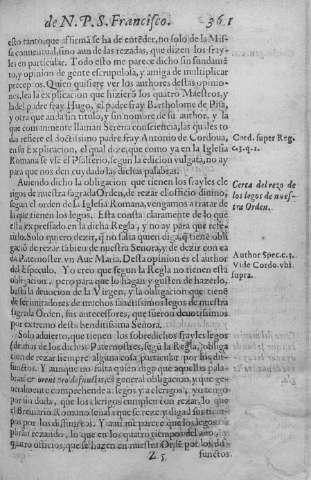 de N. P. S. Francisco. 361
esto tanto, que afirma se ha de entēder, no solo de la Mis-
sa conuentual, sino aun de las rezadas, que dizen los fray-
les en particular. Todo esto me parece dicho sin fundamē
to, y opinion de gente escrupulosa, y amiga de multiplicar
preceptos. Quien quisiere ver los authores destas opinio-
nes, lea la exposicion que hizierō los quatro Maestros, y
la del padre fray Hugo, el padre fray Bartholome de Pisa,
y otra que anda sin titulo, y sin nombre de su author, y la
que comunmente llaman Serena consciencia, las quales to
das refiere el doctissimo padre fray Antonio de Cordoua,
en su Explicacion, el qual dize, que como ya en la Iglesia
Romana se vse el Psalterio, segun la edicion vulgata, no ay
para que nos den cuydado las dichas palabras.
Cord. super Reg.
c. 3. q. 1.
Auiendo dicho la obligacion que tienen los frayles cle
rigos de nuestra sagrada Orden, de rezar el officio diuino,
segun el orden de la Iglesia Romana, vengamos a tratar de
la que tienen los legos. Esta consta claramente de lo que
esta expressado en la dicha Regla, y no ay para que refe-
rirlo. Solo quiero dezir, q̄ no falta quien diga, q̄ tiene obli
gaciō de rezar tābien de nuestra Señora, y de dezir con ca
da Paternoster, vn Aue Maria. Desta opinion es el author
del Especulo. Yo creo que segun la Regla no tienen esta
obligacion, pero para que lo hagan y gusten de hazerlo,
basta la deuocion de la Virgen, y la obligacion que tienē
de ser imitadores de muchos sanctissimos legos de nuestra
sagrada Orden, sus antecessores, que fueron deuotissimos
por extremo desta benditissima Señora.
Cerca del rezo de
los legos de nues-
tra Orden.
Author Spec. c. 3.
Vide Cordo. vbi
supra.
Solo aduierto, que tienen los sobredichos frayles legos
(de mas de los dichos Paternostres, segū la Regla) obliga
cion de rezar siempre alguna cosa particular por los dif-
functos. Y aunque no falta quien diga que aquellas pala-
bras: Et orent pro defunctis, es general obligacion, y que ge-
neralmente comprehende a legos y a clerigos, yo tengo
por sin duda, que los clerigos cumplen con rezar, lo que
el Breuiario Romano señala que se reze, y digal sus tiem-
pos por los difunctos. Y a mi me parece que los legos
quatro officios, que se hazen en nuestra Ordē por los di-
Z 5 functos.